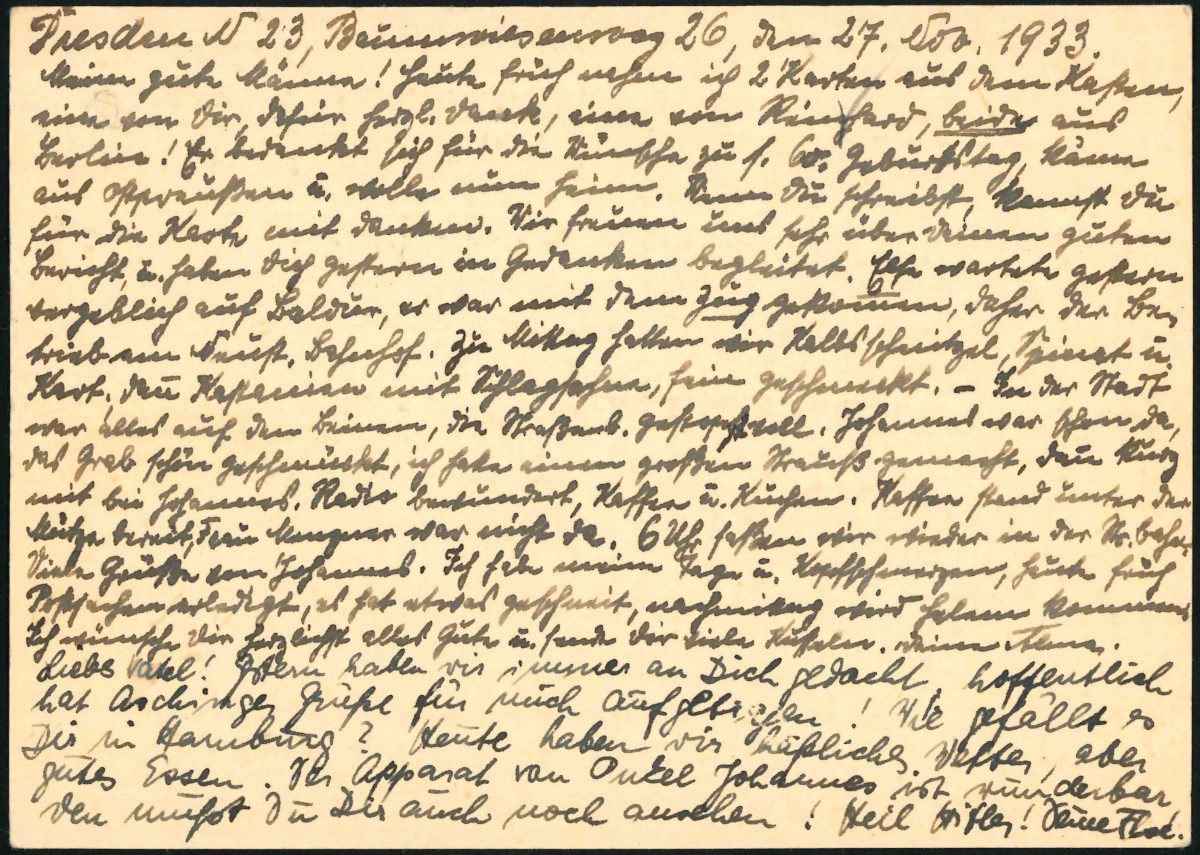 Dresden N 23, Baumwiesenweg 26, den 27. Nov. 1933.
Mein gute Männe! Heute früh nahm ich 2 Karten aus dem Kasten,
eine von Dir, dafür herzl. Dank, eine von Reinhard, beide aus
Berlin! Er bedankt sich für die Wünsche zu s. 60. Geburtstag, käme
aus Ostpreußen u. wolle nun heim. Wenn Du schreibst, kannst Du
für die Karte mit danken. Wir freuen uns sehr über Deinen guten
Bericht, u. haben Dich gestern in Gedanken begleitet. Else wartete gestern
vergeblich auf Baldur, er war mit dem Zug gekommen, daher der Be-
trieb am Neust. Bahnhof. Zu Mittag hatten wir Kalbsschnitzel, Spinat u.
Kart., dan̄ Kastanien mit Schlagsahne, fein geschmeckt. – In der Stadt
war alles auf den Beinen, die Straßenb. gestopft voll. Johannes war schon da,
das Grab schön geschmückt, ich hatte einen großen Strauß gemacht, dan̄ kurz
mit bei Johannes. Radio bewundert, Kaffee u. Kuchen. Kaffee stand unter der
Mütze bereit, Frau war nicht da. 6 Uhr saßen wir wieder in der Str.bahn.
Viele Grüße von Johannes. Ich habe meine Tage u. Kopfschmerzen, heute früh
Postsachen erledigt, es hat etwas geschneit, nachmittag wird kommen
Ich wünsche Dir herzlichst alles Gute u. sende Dir viele Küsseln. Deine
Liebes Vatel! Gestern haben wir immer an Dich gedacht, hoffentlich
hat Aschinger Grüße für mich aufgetragen! Wie gefällt es
Dir in Hamburg? Heute haben wir häßliches Wetter, aber
gutes Essen. Der Apparat von Onkel Johannes ist wunderbar,
den mußt Du Dir auch noch ansehen! Heil Hitler! Deine